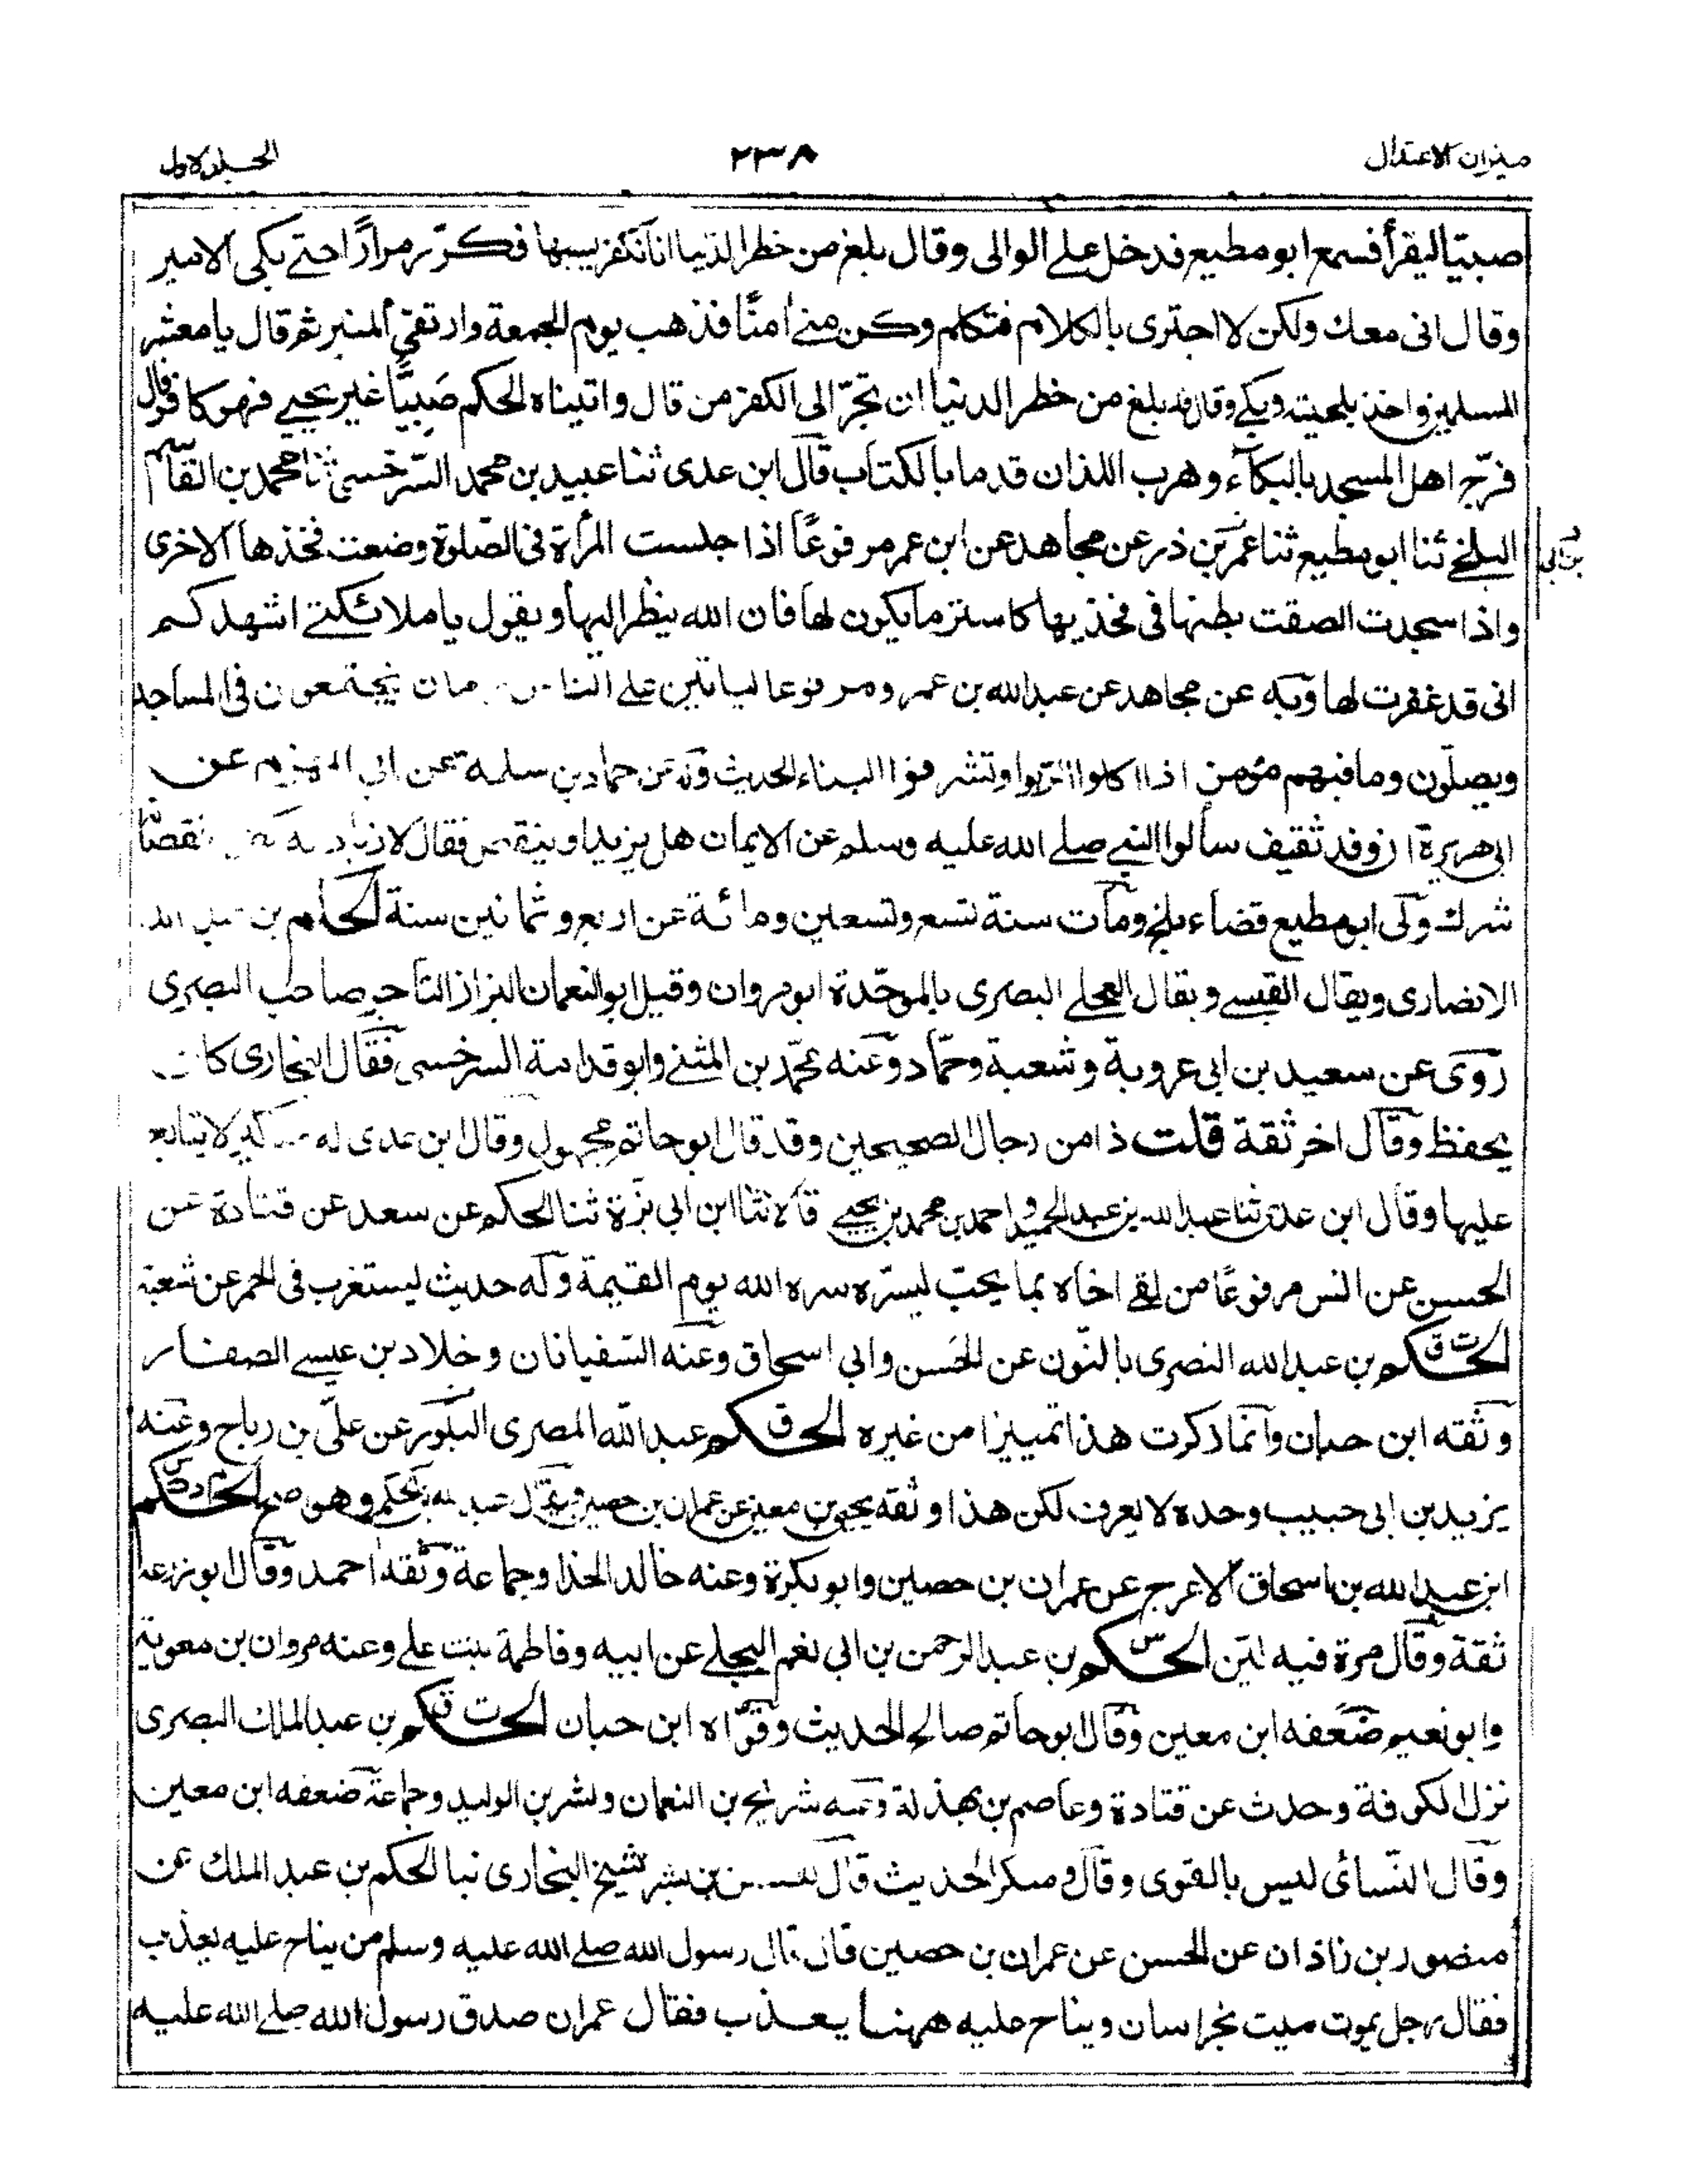 ميزان الاعتدال
٢٣٨
الجلد الاول
صبيّا ليقرأ فسمع ابو مطيع فدخل على الوالى وقال بلغ من خطر الدنيا انا نكفر بسببها فكرّر مرارًا حتى بكى الامير
وقال انى معك ولكن لا اجترى بالكلام فتكلم وكن منى امنًا فذهب يوم الجمعة وارتقى المنبر ثم قال يا معشر
المسلمين واخذ بلحيته وبكى وقال قد بلغ من خطر الدنيا ان تجرّ الى الكفر من قال واتيناه الحكم صبيًّا غير يحيى فهو كافر قال
فرجّ اهل المسجد بالبكاء وهرب اللذان قدما بالكتاب قال ابن عدى ثنا عبيد بن محمد السرخسى ثنا محمد بن القاسم
البلخى ثنا ابو مطيع ثنا عمر بن ذر عن مجاهد عن ابن عمر مرفوعًا اذا جلست المرأة فى الصلوة وضعت فخذها الاخرى
واذا سجدت الصقت بطنها فى فخذيها كاستر ما يكون لها فان الله ينظر اليها ويقول يا ملائكتى اشهدكم
انى قد غفرت لها وبه عن مجاهد عن عبد الله بن عمرو مرفوعا لياتين على الناس مان يجتمعون فى المساجد
ويصلّون وما فيهم مؤمن اذا اكلوا الربوا وتشرفوا البناء الحديث وله عن حماد بن سلمة عن ابى المهزم عن
ابى هريرة ان وفد ثقيف سألوا النبى صلى الله عليه وسلم عن الايمان هل يزيد او ينقص فقال لا زيادته نقصانه
شرك ولى ابو مطيع قضاء بلخ ومات سنة تسع وتسعين ومائة عن اربع وثمانين سنة الحكم بن عبد الله
الانصارى ويقال القيسى ويقال العجلى البصرى بالموحّدة ابو مروان وقيل ابو النعمان البزاز التاجر صاحب البصرى
روى عن سعيد بن ابى عروبة وشعبة وحمّاد وعنه محمّد بن المثنى وابو قدامة السرخسى فقال البخارى كان
يحفظ وقال اخر ثقة قلت ذا من رجال الصحيحين وقد قال ابو حاتم مجهول وقال ابن عدى له مناكير لا يتابع
عليها وقال ابن عدى ثنا عبد الله بن عبد الحميد واحمد بن محمد بن يحيى قالا ثنا ابن ابى بزة ثنا الحكم عن سعد عن قتادة عن
الحسن عن انس مرفوعًا من لقى اخاه بما يحبّ ليسّره سره الله يوم القيمة وله حديث يستغرب فى الخمر عن شعبة
الحكم بن عبد الله النصرى بالنّون عن الحسن وابى اسحاق وعنه السّفيانان وخلاد بن عيسى الصفار
وثقه ابن حبان وانما ذكرت هذا تمييزا من غيره الحكم عبد الله المصرى البلوى عن علىّ بن رباح وعنه
يزيد بن ابى حبيب وحده لا يعرف لكن هذا وثقه يحيى بن معين عن عمران بن حصين ويقال عبد الله بن الحكم وهو صح الحكم
ابن عبد الله بن اسحاق الاعرج عن عمران بن حصين وابو بكرة وعنه خالد الحذا وجماعة وثقه احمد وقال ابو زرعة
ثقة وقال مرة فيه لين الحكم بن عبد الرحمن بن ابى نعم البجلى عن ابيه وفاطمة بنت على وعنه مروان بن معوية
وابو نعيم ضعفه ابن معين وقال ابو حاتم صالح الحديث وقوّاه ابن حبان الحكم بن عبد الملك البصرى
نزل الكوفة وحدث عن قتادة وعاصم بن بهدلة وعنه شريح بن النعمان وبشر بن الوليد وجماعة ضعفه ابن معين
وقال النّسائى ليس بالقوى وقال د منكر الحديث قال بن بشر شيخ البخارى نبا الحكم بن عبد الملك عن
منصور بن زاذان عن الحسن عن عمران بن حصين قال قال رسول الله صلى الله عليه وسلم من يناح عليه يعذب
فقال رجل يموت ميت بخراسان ويناح عليه ههنا يعذب فقال عمران صدق رسول الله صلى الله عليه